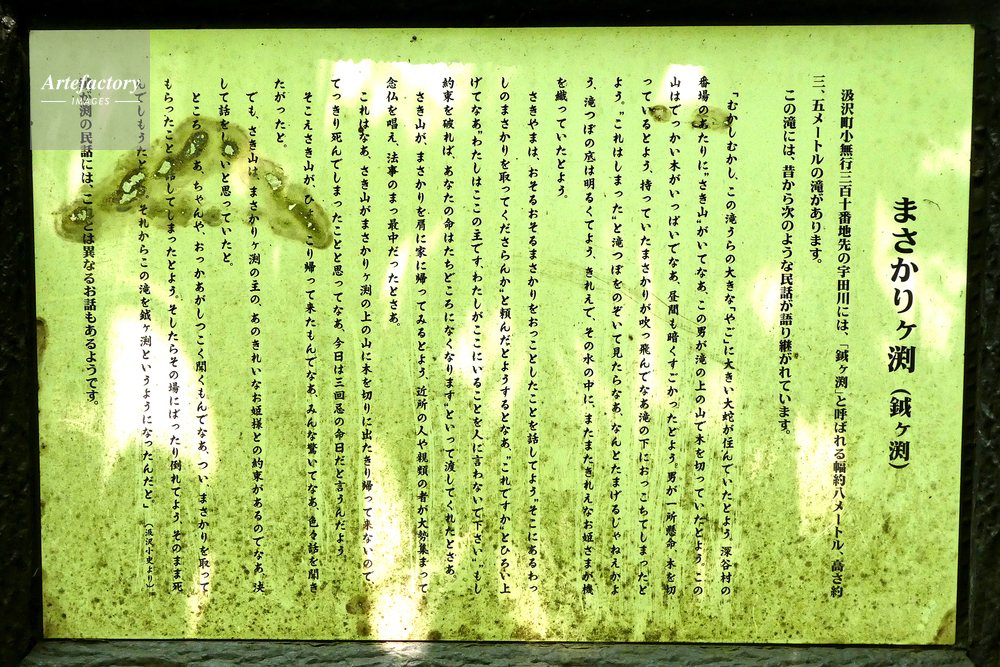 まさかりヶ渕(鉞ヶ渕)
汲沢町小無行三百十番地先の宇田川には、「鉞ヶ渕」と呼ばれる幅約八メートル、高さ約
三、五メートルの滝があります。
この滝には、昔から次のような民話が語り継がれています。
「むかしむかし、この滝うらの大きな"やご"に大きい大蛇が住んでいたとよう。深谷村の
番場のあたりに"さき山"がいてなあ、この男が滝の上の山で木を切っていたとよう。この
山はでっかい木がいっぱいでなあ、昼間も暗くすごかったとよう。男が一所懸命、木を切
っているとよう、持っていたまさかりが吹っ飛んでなあ滝の下におっこちてしまったと
よう。"これはしまった"と滝つぼをのぞいて見たらなあ、なんとたまげるじゃねえかよ
う、滝つぼの底は明るくてよう、きれえて、その水の中に、またまたきれえなお姫さまが機
を織っていたとよう。
さきやまは、おそるおそるまさかりをおっことしたことを話してよう"そこにあるわっ
しのまさかりを取ってくださらんか"と頼んだとようするとなあ、"これですか"とひろい上
げてなあ"わたしはここの主です。わたしがここにいることを人に言わないで下さい""もし
約束を破れば、あなたの命はたちどころになくなります"といって渡してくれたとさあ。
さき山が、まさかりを肩に家に帰ってみるとよう、近所の人や親類の者が大勢集まって
念仏を唱え、法事のまっ最中だったとさあ。
これはなあ、さき山がまさかりヶ渕の上の山に木を切りに出たきり帰って来ないので、
てっきり死んでしまったことと思ってなあ、今日は三回忌の命日だと言うんだよう。
そこえさき山が、ひょっこり帰って来たもんでなあ、みんな驚いてなあ、色々話を聞き
たがったと。
でも、さき山は、まさかりヶ渕の主の、あのきれいなお姫様との約束があるのでなあ、決
して話を いと思っていたと。
ところ あ、ちゃんや、おっかあがしつこく聞くもんでなあ、つい、まさかりを取って
もらったこと 話してしまったとよう。そしたらその場にばったり倒れてよう、そのまま死
んでしもうたと それからこの滝を鉞ヶ渕というようになったんだと。」 (汲沢小史より)
が渕の民話には、こ とは異なるお話もあるようです。
Artefactory
IMAGES